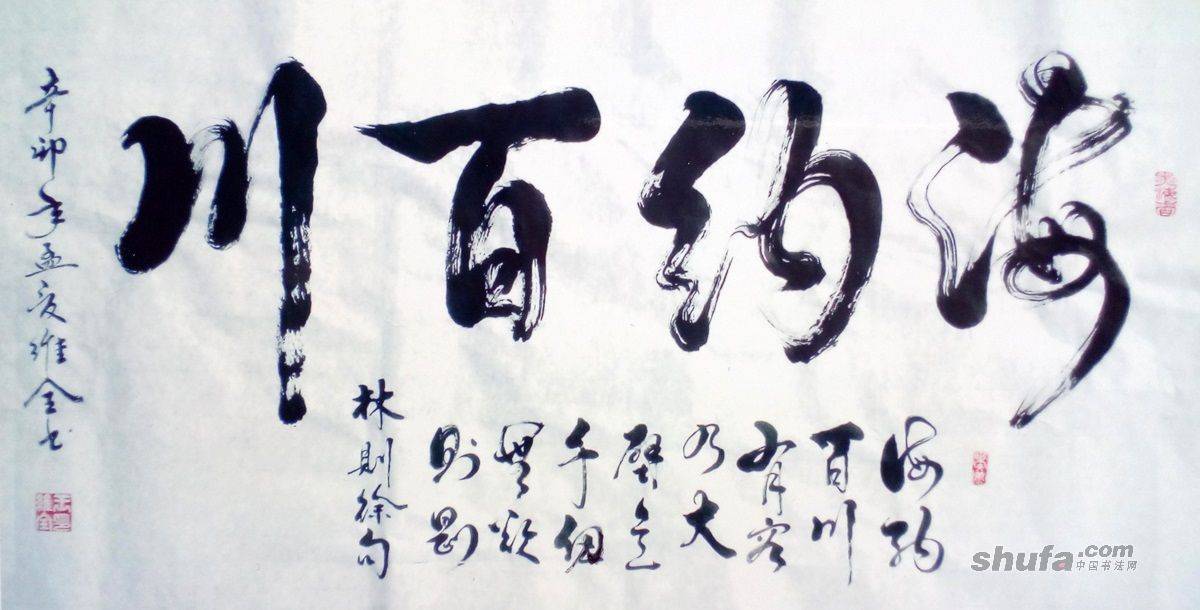 海纳百川
海纳
百川
有容
乃大
壁立
千仞
無欲
则剛
林則徐句
辛卯年孟夏維全书
shufa.com
中国书法网